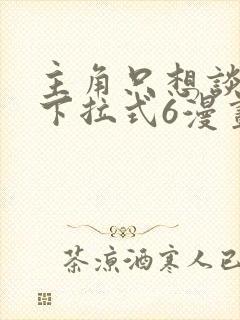 主角只想談
下拉式6漫畫
茶凉酒寒人已